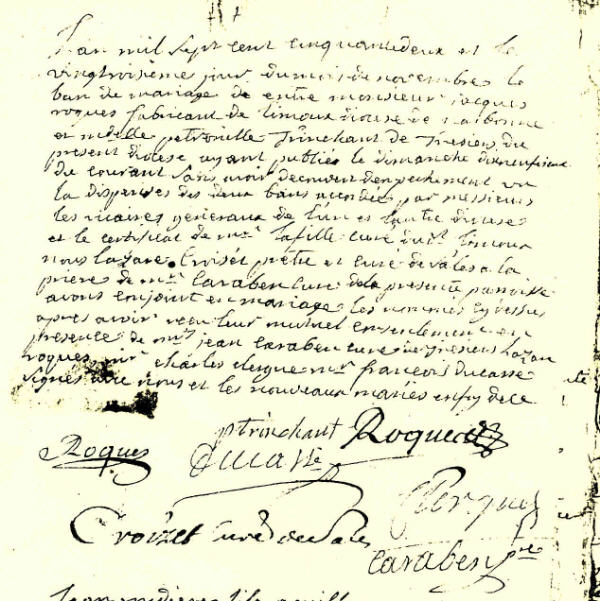 L'an mil sept cent cinquantedeux et le
vingtroisieme jour du mois de novembre le
ban de mariage de entre monsieur jacques
roques fabricant de limoux diocese de narbonne
et mdelle petronille Trinchant de Tresiers du
present diocese ayant publiés le dimanche dixneufieme
du courant sans avoir decouvert denpechement vu
la dispenses des deux bans accordée par messieurs
les vicaires generaux de l'un et lautre diocese
et le certificat de mr lafille curé dudt limoux
nous lazare Croiset pretre et curé de vales a la
priere de mr Caraben cure de la presente paroisse
avons conjoint en mariage les nommes cydessus
apres avoir receu leur mutuel consentement en
presence de mrs jean Caraben cure de tresiers
roques mr charles clergue mr francois Ducasse
signes avec nous et les nouveaux mariés en foy de ce
ptrinchant Roques
Roques Ducasse
Clergue
Croizet curé de
Caraben